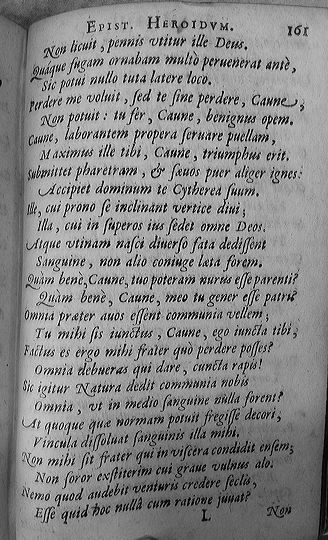 EPIST. HEROIDVM. 161
Non licuit, pennis vtitur ille Deus.
Quàque fugam ornabam multò peruenerat antè,
Sic potui nullo tuta latere loco.
Perdere me voluit, sed te sine perdere, Caune,
Non potuit: tu fer, Caune, benignus opem.
Caune, laborantem propera seruare puellam,
Maximus ille tibi, Caune, triumphus erit.
Submittet pharetram, & sæuos puer aliger ignes:
Accipiet dominum te Cytherea suum.
Ille, cui prono se inclinant vertice diui;
Illa, cui in superos ius sedet omne Deos.
Atque vtinam nasci diuerso fata dedissent
Sanguine, non alio coniuge læta forem.
Quàm benè, Caune, tuo poteram nurus esse parenti?
Quàm benè, Caune, meo tu gener esse patri?
Omnia præter auos essent communia vellem;
Tu mihi sis iunctus, Caune, ego iuncta tibi;
Factus es ergo mihi frater quò perdere posses?
Omnia debueras qui dare, cuncta rapis!
Sic igitur Natura dedit communia nobis
Omnia, vt in medio sanguine nulla forent?
At quoque quæ normam potuit fregisse decori,
Vincula dissoluat sanguinis illa mihi.
Non mihi sit frater qui in viscera condidit ensem;
Non soror exstiterim cui graue vulnus alo.
Nemo quod audebit venturis credere seclis,
Esse quid hoc nullâ cum ratione juuat?
L Non